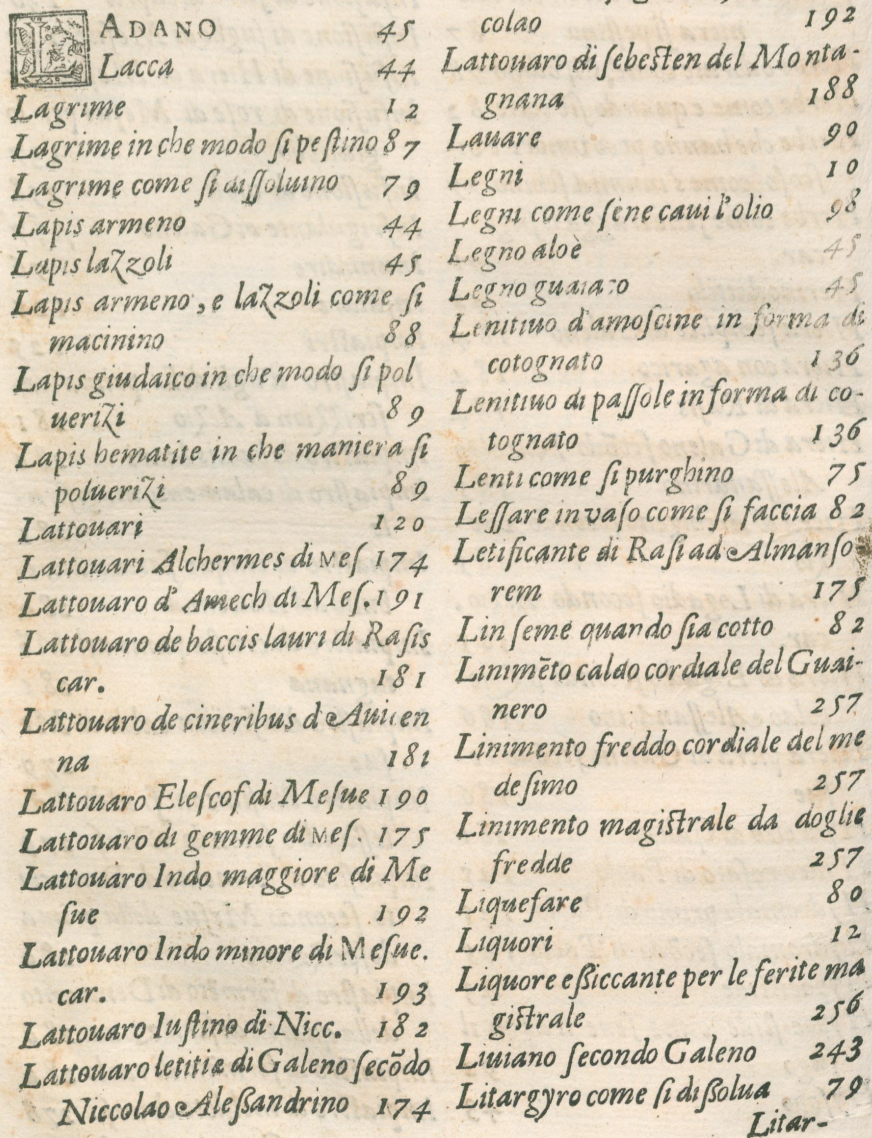 LADANO 45
Lacca 44
Lagrime 12
Lagrime in che modo ſi peſtino 87
Lagrime come ſi diſſoluino 79
Lapis armeno 44
Lapis lazzoli 45
Lapis armeno, e lazzoli come ſi
macinino 88
Lapis giudaico in che modo ſi pol
uerizi 89
Lapis hematite in che maniera ſi
poluerizi 89
Lattouari 120
Lattouari Alchermes di Meſ 174
Lattouaro d' Amech di Meſ. 191
Lattouaro de baccis lauri di Raſis
car. 181
Lattouaro de cineribus d Auicen
na 181
Lattouaro Eleſcof di Meſue 190
Lattouaro di gemme di Meſ. 175
Lattouaro Indo maggiore di Me
ſue 192
Lattouaro Indo minore di Meſue.
car. 193
Lattouaro Iuſtino di Nicc. 182
Lattouaro letitia di Galeno ſecōdo
Niccolao Aleßandrino 174
colao 192
Lattouaro di ſebeſten del Monta-
gnana 188
Lauare 90
Legni 10
Legni come ſene caui l'olio 98
Legno aloè 45
Legno guaiaco 45
Lenitiuo d'amoſcine in forma di
cotognato 136
Lenitiuo di paſſole in forma di co-
tognato 136
Lenti come ſi purghino 75
Leſſare in vaſo come ſi faccia 82
Letificante di Raſi ad Almanſo
rem 175
Lin ſeme quando ſia cotto 82
Linimēto caldo cordiale del Guai-
nero 257
Linimento freddo cordiale del me
deſimo 257
Linimento magiſtrale da doglie
fredde 257
Liquefare 80
Liquori 12
Liquore eßiccante per le ferite ma
giſtrale 256
Liuiano ſecondo Galeno 243
Litargyro come ſi dißolua 79
Litar-